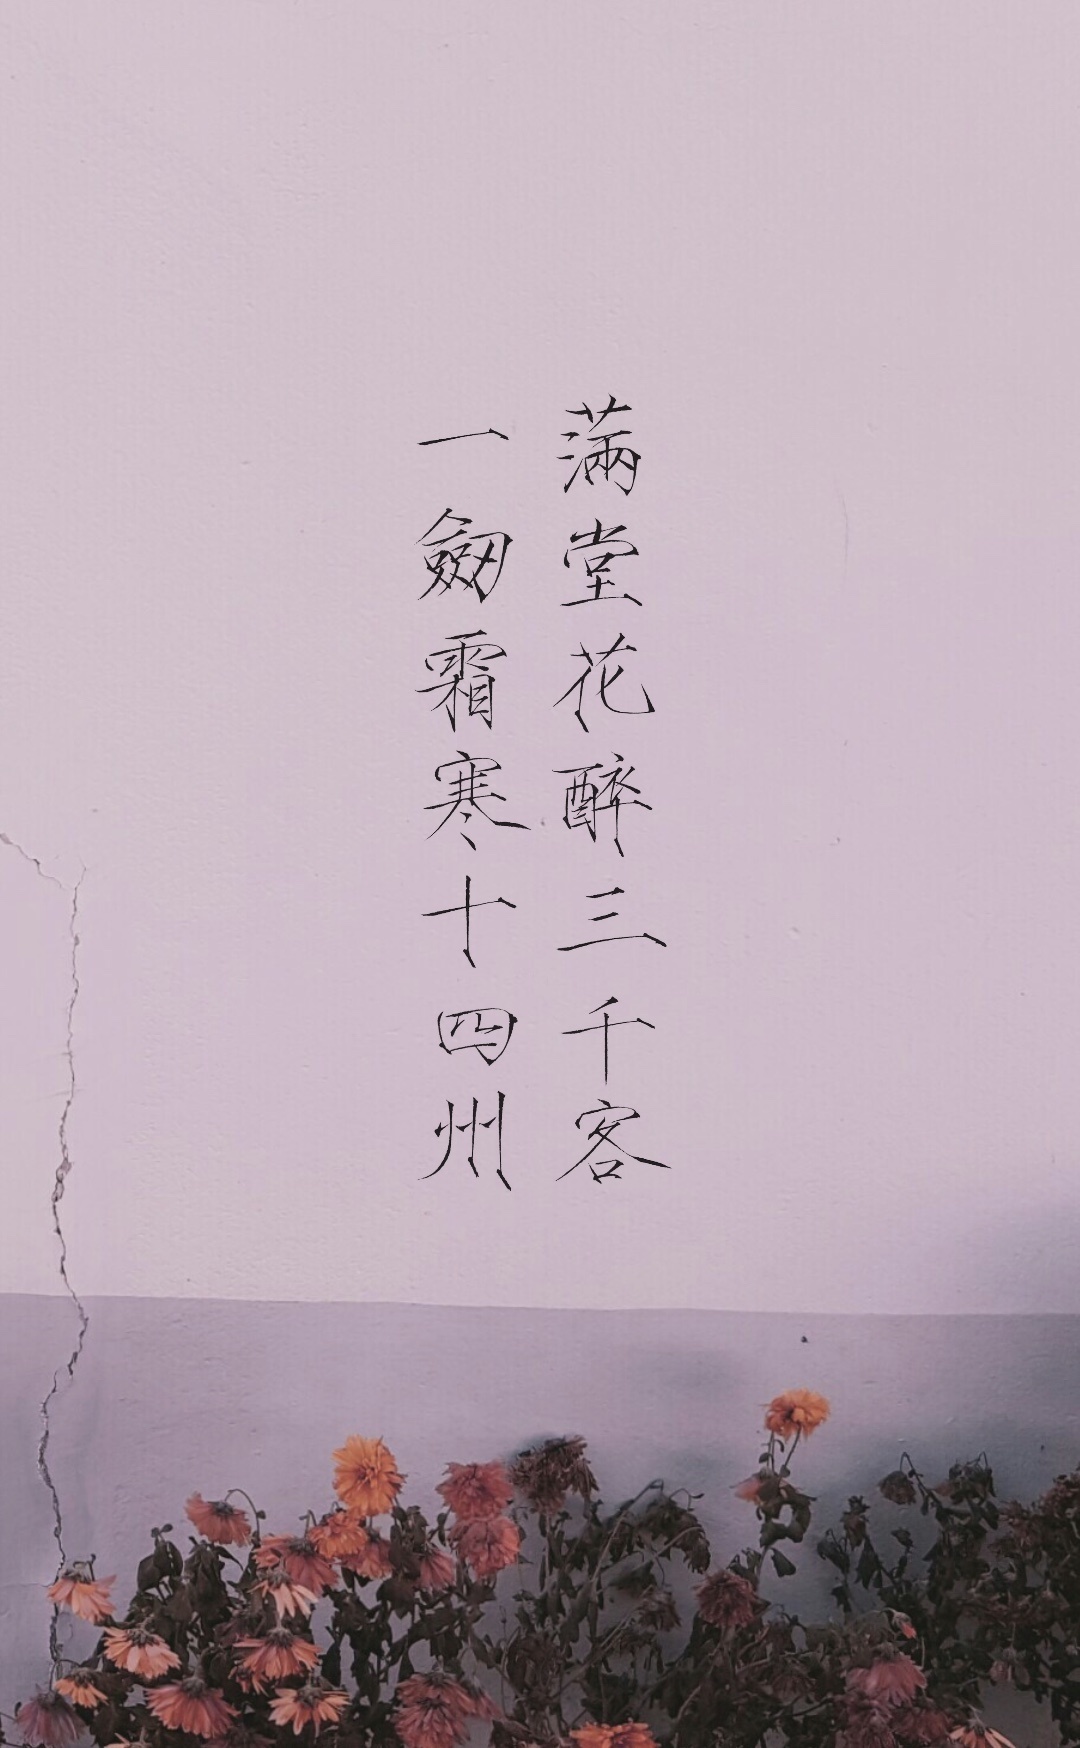 満堂花醉三千客
一劔霜寒十四州